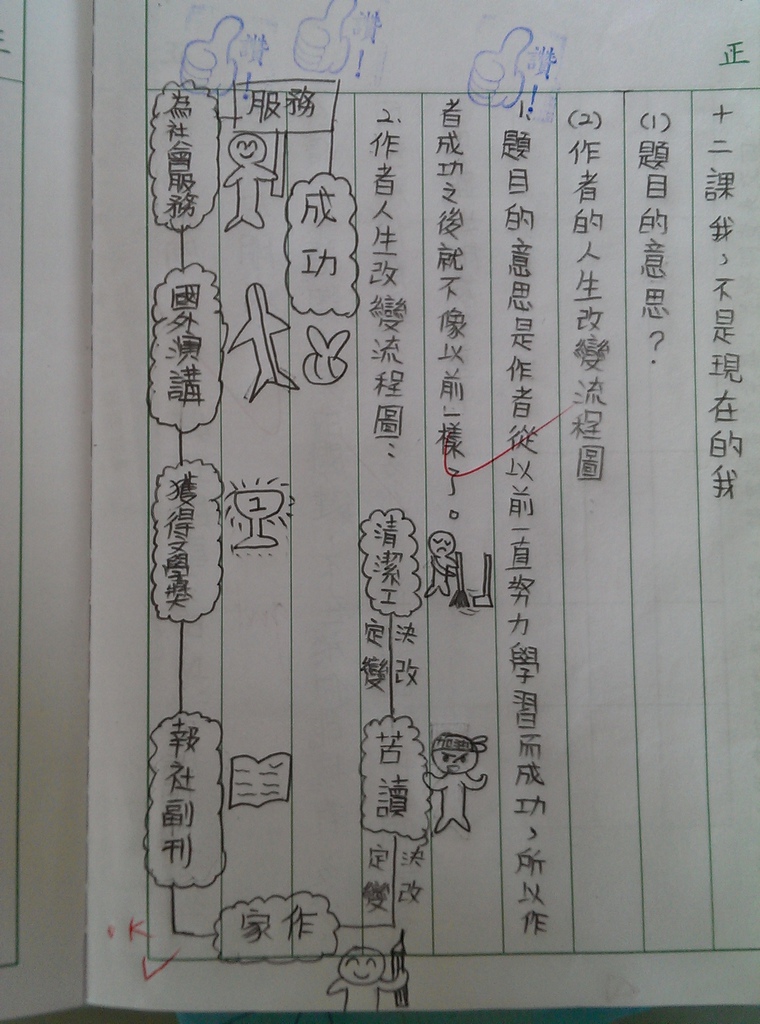 正
十二課我，不是現在的我
(1)題目的意思？
(2)作者的人生改變流程圖
1.題目的意思是作者從以前一直努力學習而成功，所以作
者成功之後就不像以前一樣了。
2.作者人生改變流程圖：
清潔工
決定
改變
苦讀
決定
改變
作家
報社副刊
獲得文學獎
1
國外演講
為社會服務
服務
成功
讚！
讚！
讚！